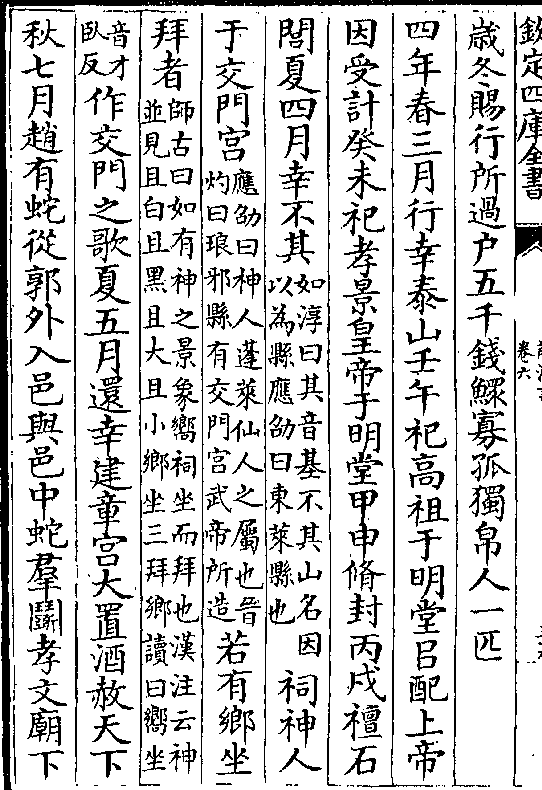 欽定四庫全書
卷六
歳冬賜行所過户五千錢鰥寡孤獨帛人一匹
四年春三月行幸泰山壬午祀高祖于明堂㠯配上帝
因受計癸未祀孝景皇帝于明堂甲申脩封丙戌禮石
閭夏四月幸不其如淳曰其音基不其山名因以為縣應劭曰東萊縣也祠神人
于交門宫應劭曰神人蓬萊仙人之屬也晉灼曰琅邪縣有交門宫武帝所造若有鄉坐
拜者師古曰如有神之景象嚮祠坐而拜也漢注云神並見且白且黑且大且小鄉坐三拜鄉讀曰嚮坐
音才卧反作交門之歌夏五月還幸建章宫大置酒赦天下
秋七月趙有蛇從郭外入邑與邑中蛇羣鬭孝文廟下